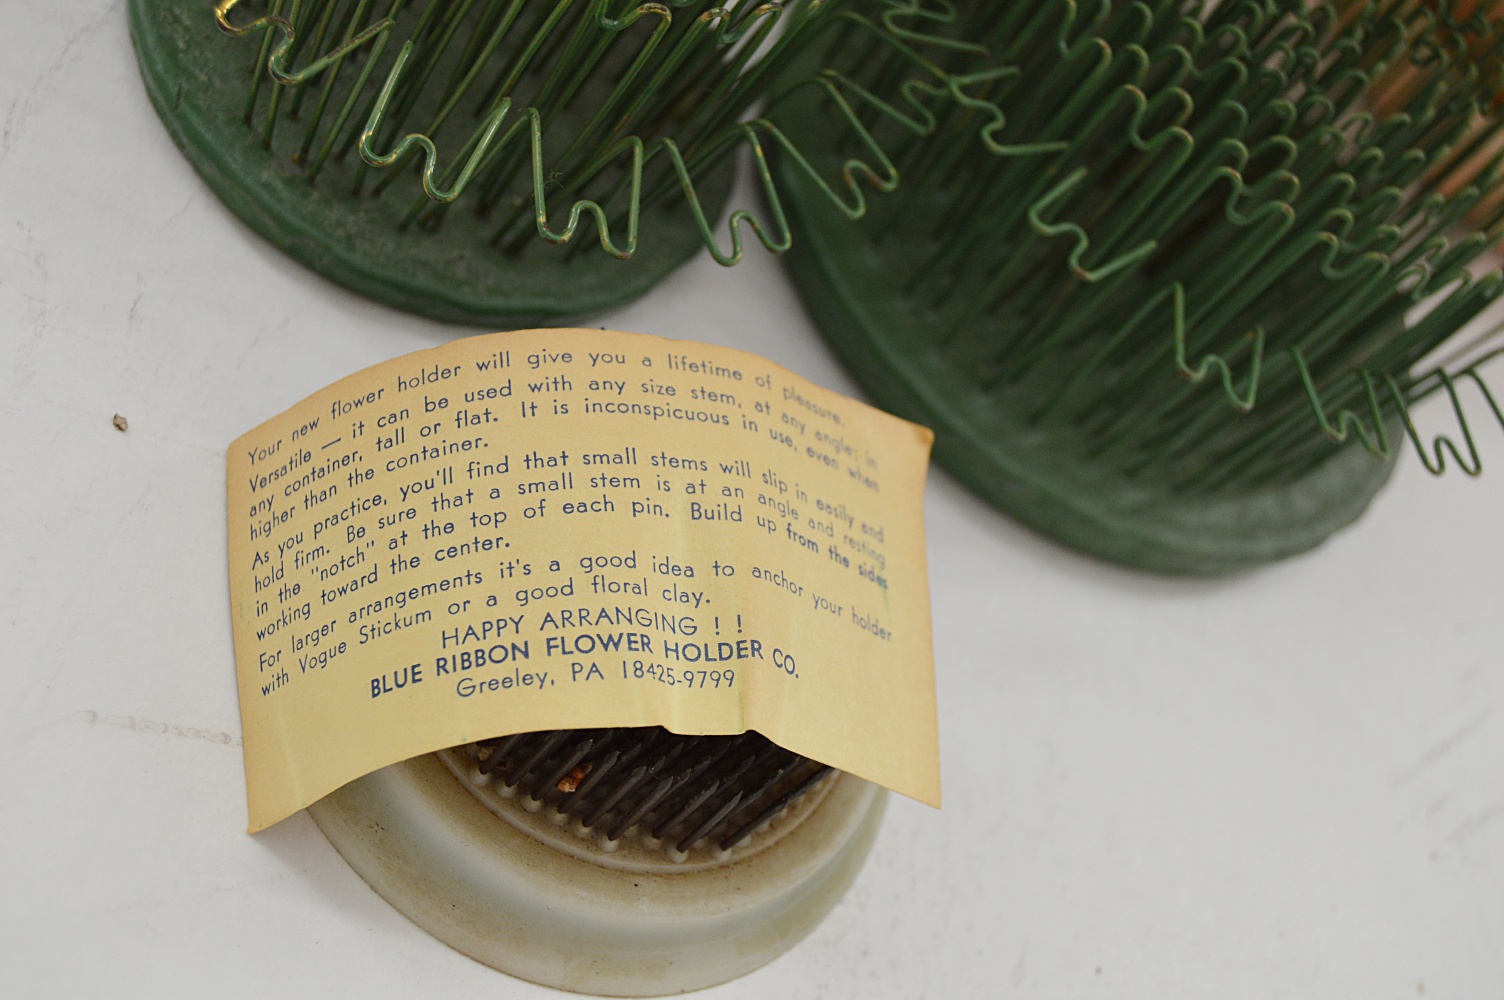 Your new flower holder will give you a lifetime of pleasure.
Versatile — it can be used with any size stem, at any angle; in
any container, tall or flat. It is inconspicuous in use, even when
higher than the container.
As you practice, you'll find that small stems will slip in easily and
hold firm. Be sure that a small stem is at an angle and resting
in the "notch" at the top of each pin. Build up from the sides
working toward the center.
For larger arrangements it's a good idea to anchor your holder
with Vogue Stickum or a good floral clay.
HAPPY ARRANGING ! !
BLUE RIBBON FLOWER HOLDER CO.
Greeley, PA 18425-9799